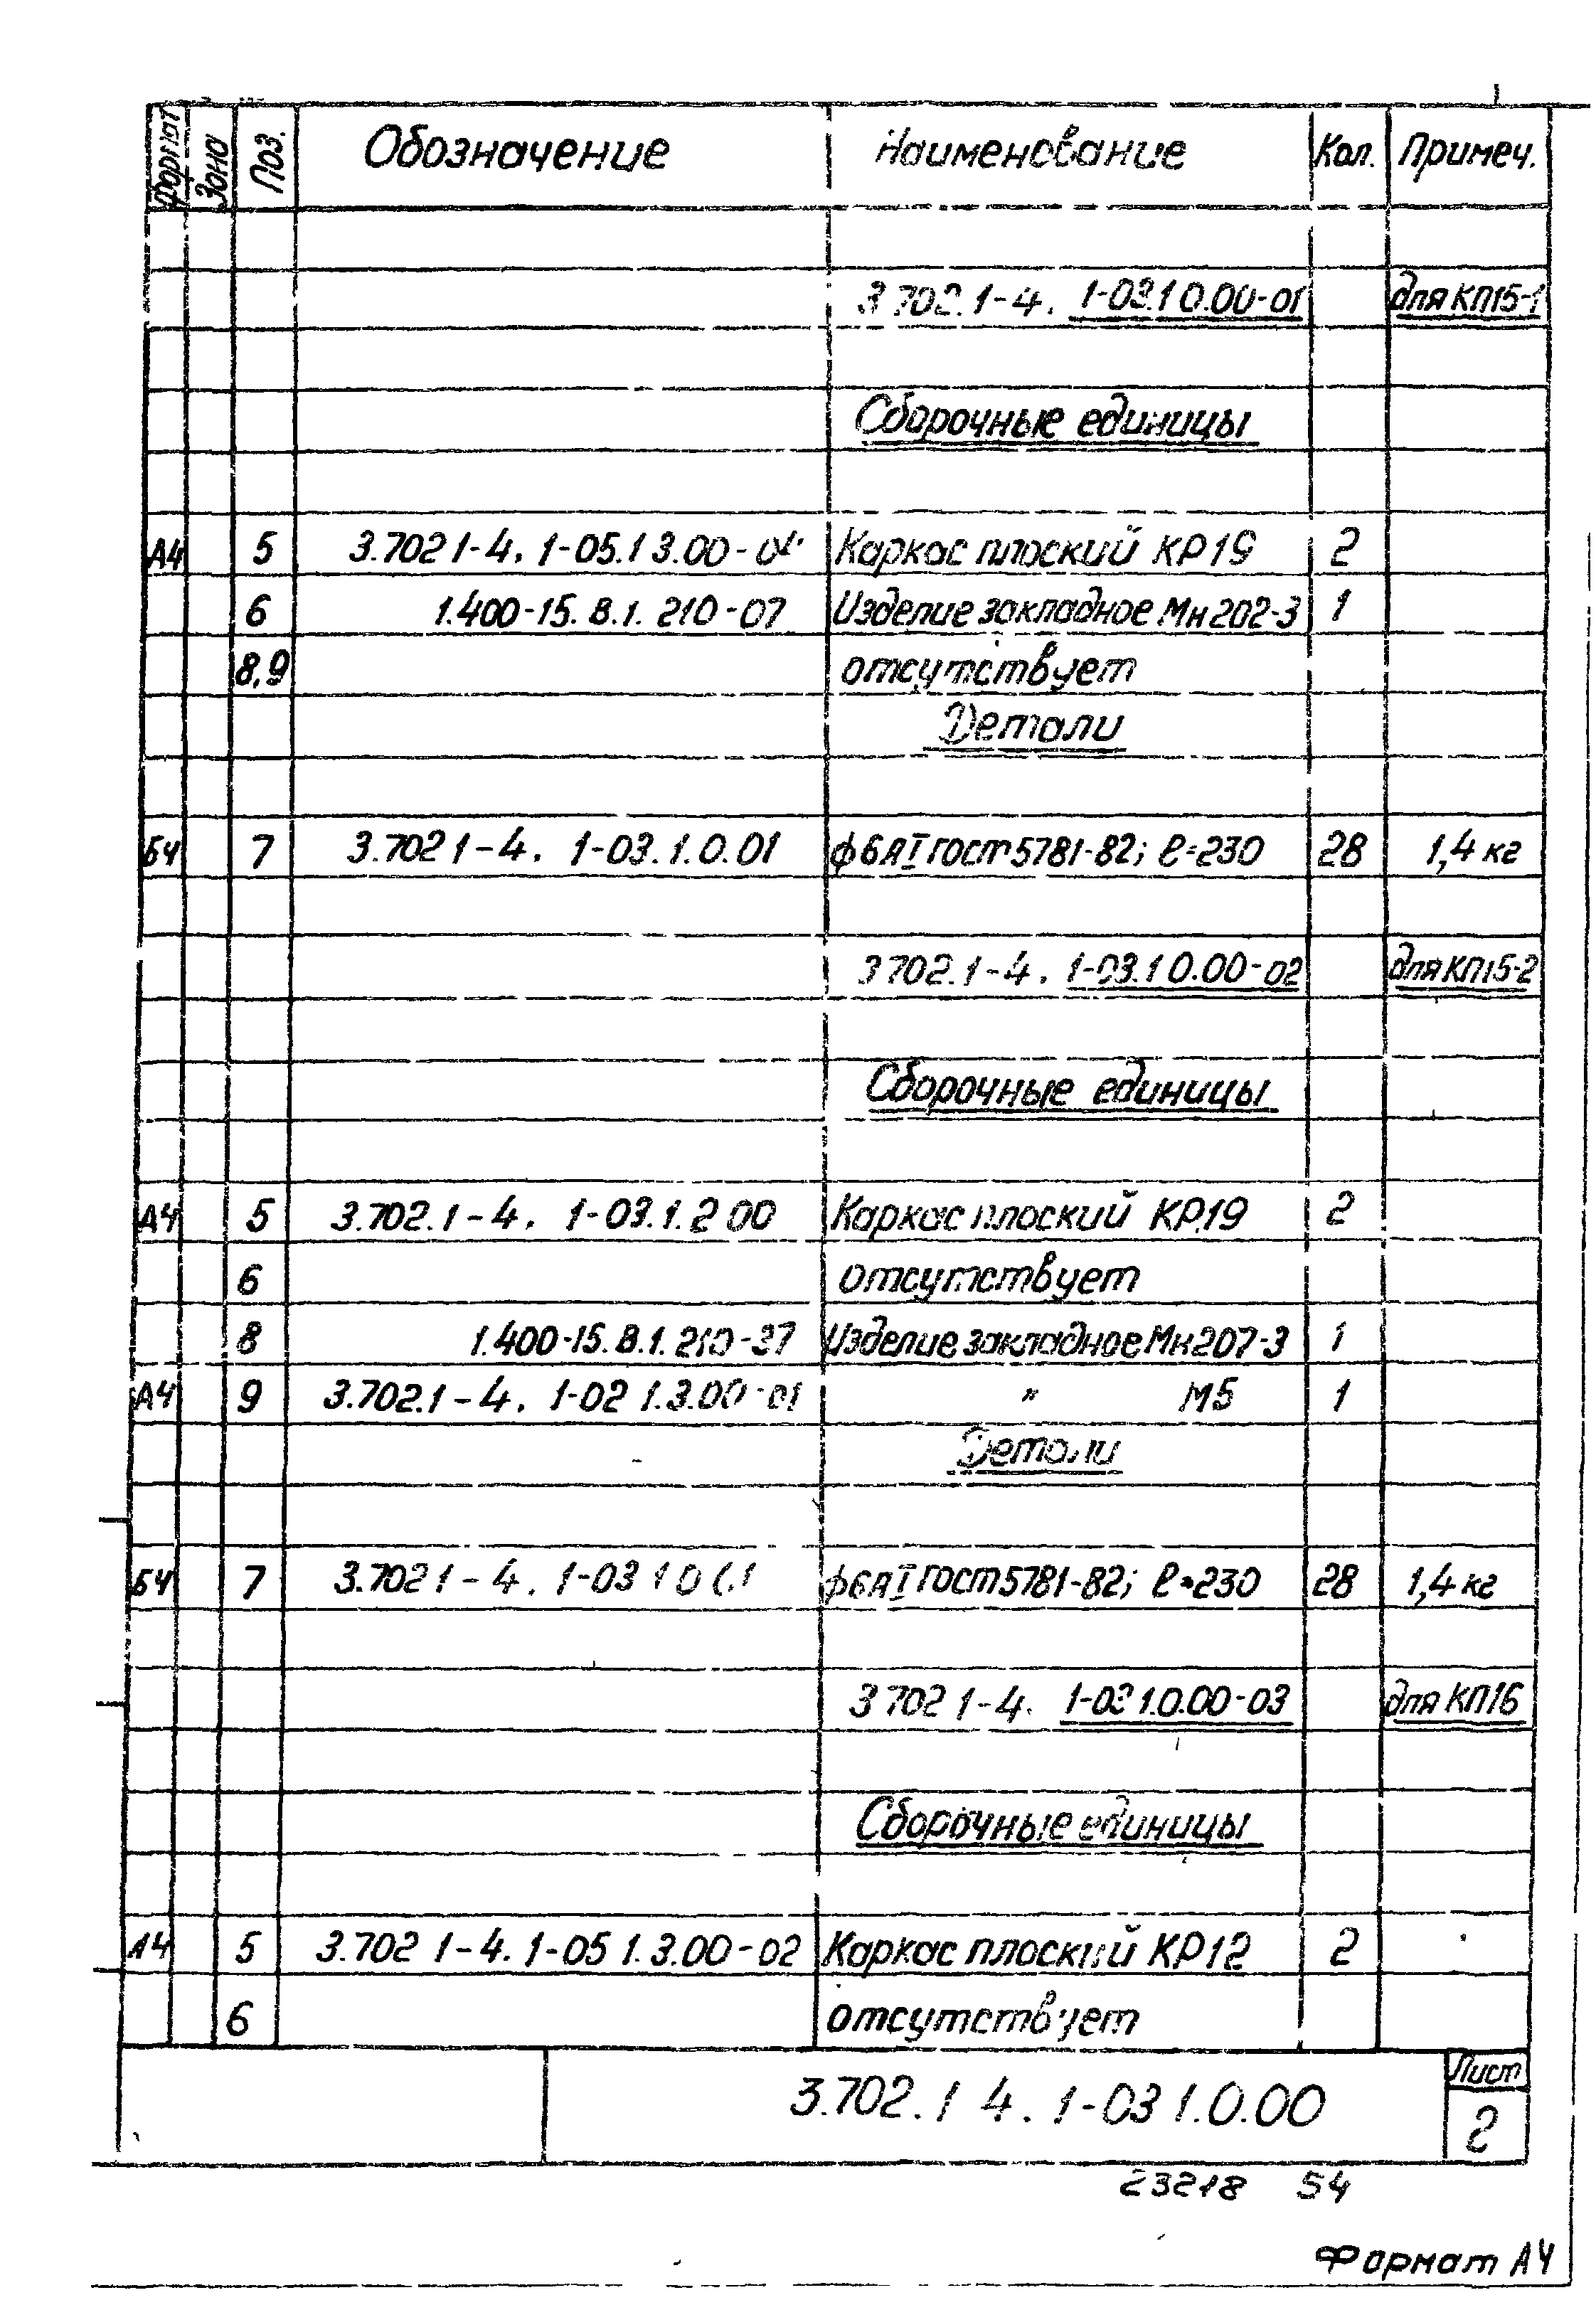 Формат Зона Поз. Обозначение Наименование Кол. Примеч.
3 702.1-4. 1-03.1 0.00-01 для КП15-1
Сборочные единицы
А4 5 3.702 1-4. 1-05.1 3.00- Каркас плоский КР19 2
6 1.400-15. В.1. 210-07 Изделие закладное Мн202-3 1
8,9 отсутствует
Детали
БЧ 7 3.702 1-4. 1-03.1.0.01 ф6АI ГОСТ 5781-82; ℓ=230 28 1,4 кг
3 702.1-4. 1-03.1 0.00-02 для КП15-2
Сборочные единицы
А4 5 3.702.1-4. 1-03.1.2 00 Каркас плоский КР19 2
6 отсутствует
8 1.400-15. В.1. 210-37 Изделие закладное Мн207-3 1
А4 9 3.702.1-4. 1-02 1.3.00-01 " М5 1
Детали
БЧ 7 3.702 1-4. 1-03 1 0 ф6АI ГОСТ 5781-82; ℓ=230 28 1,4 кг
3 702 1-4. 1-03 1.0.00-03 для КП16
Сборочные единицы
А4 5 3.702 1-4. 1-05 1.3.00-02 Каркас плоский КР12 2
6 отсутствует
3.702.1 4. 1-03 1.0.00 Лист
2
23218 54
Формат А4